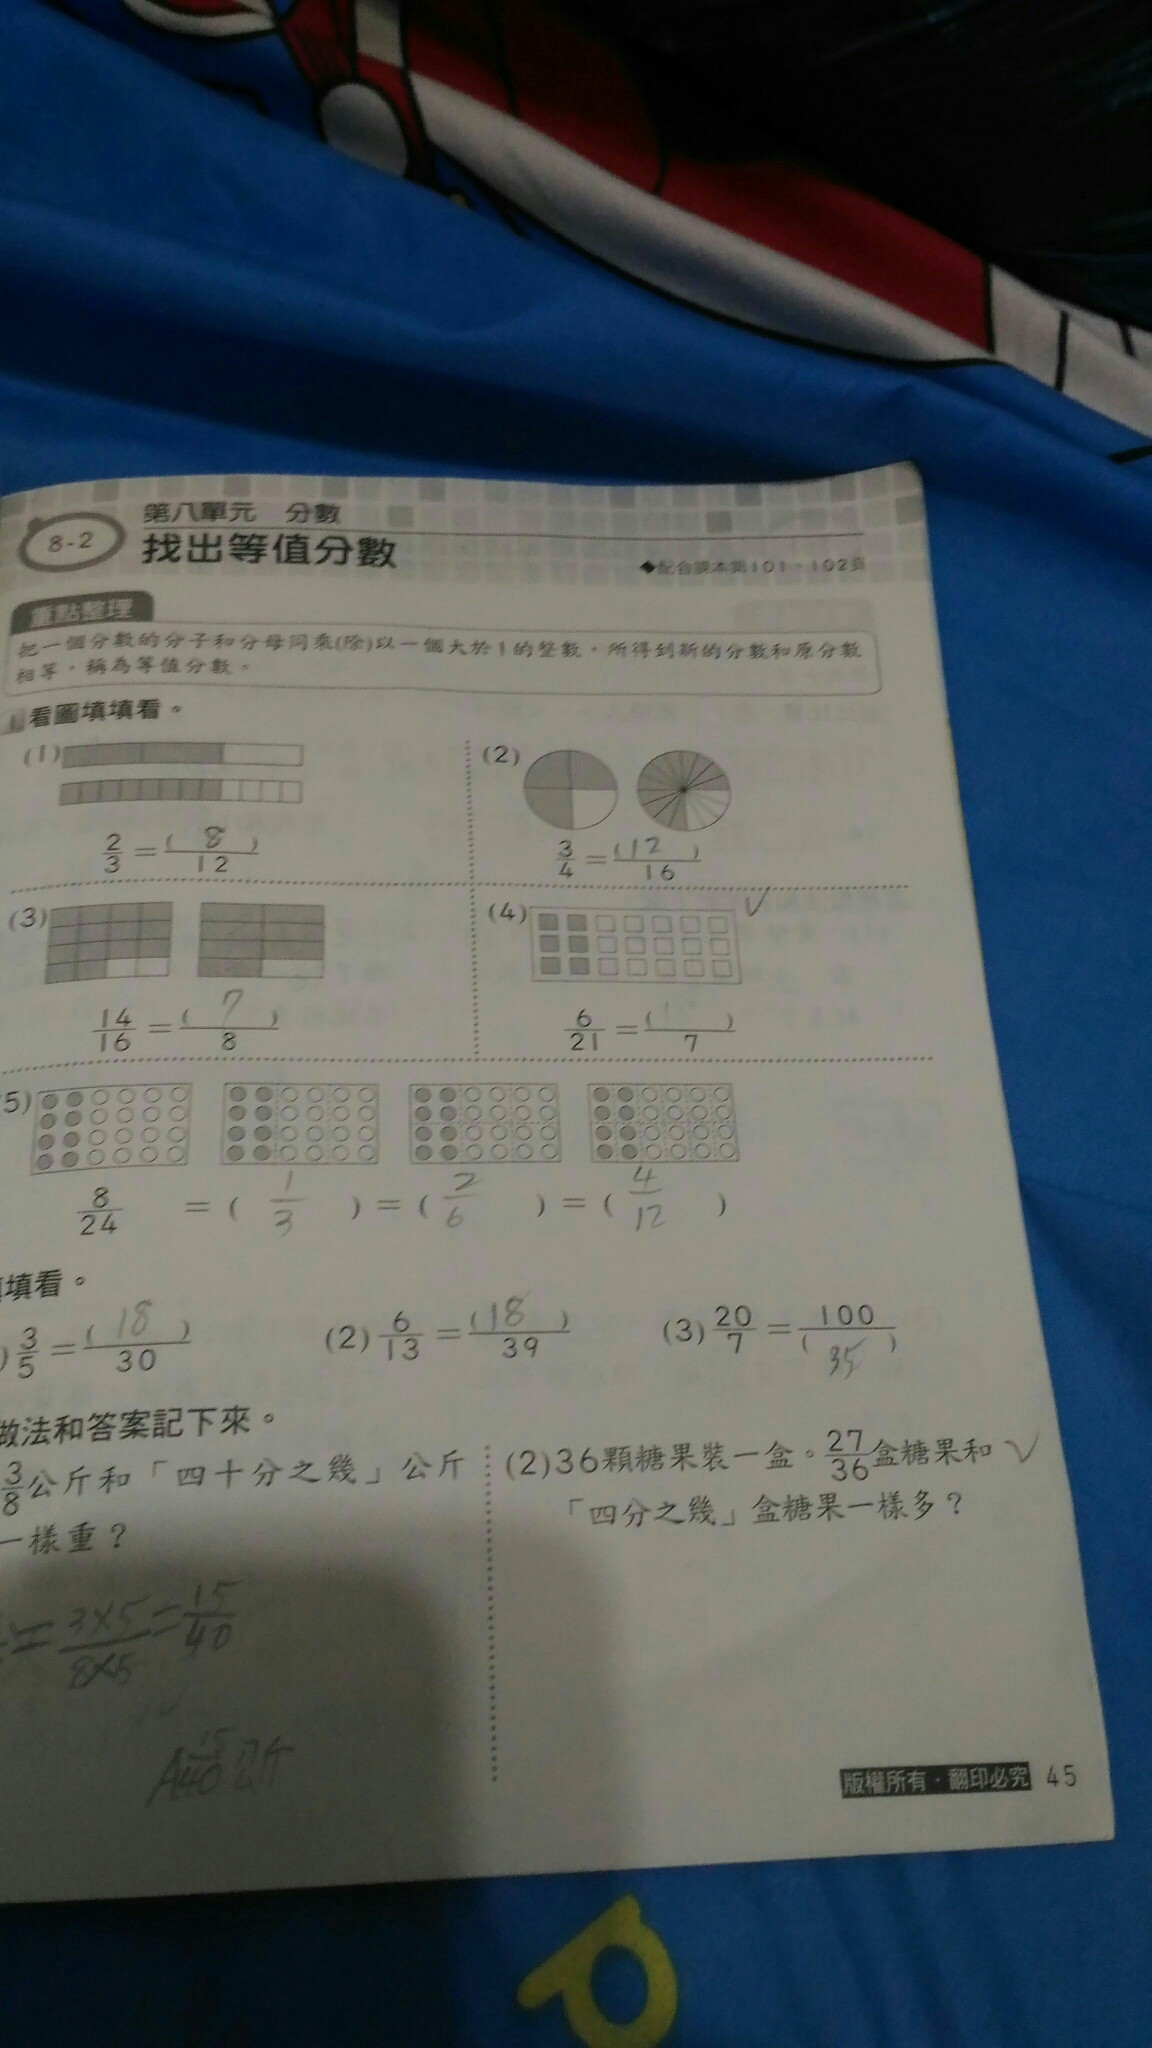 8-2
第八單元 分數
找出等值分數
◆配合課本第101、102頁
重點整理
把一個分數的分子和分母同乘(除)以一個大於1的整數,所得到新的分數和原分數
相等,稱為等值分數。
看圖填填看。
(1)
2/3 = ( 8 )/12
(2)
3/4 = ( 12 )/16
(3)
14/16 = ( 7 )/8
(4)
6/21 = ( )/7
5)
8/24 = ( 1/3 ) = ( 2/6 ) = ( 4/12 )
填看。
) 3/5 = ( 18 )/30
(2) 6/13 = ( 18 )/39
(3) 20/7 = 100/( 35 )
做法和答案記下來。
3/8公斤和「四十分之幾」公斤
一樣重?
= 3×5/8×5 = 15/40
A 15/40 公斤
(2)36顆糖果裝一盒。27/36盒糖果和
「四分之幾」盒糖果一樣多?
版權所有·翻印必究 45